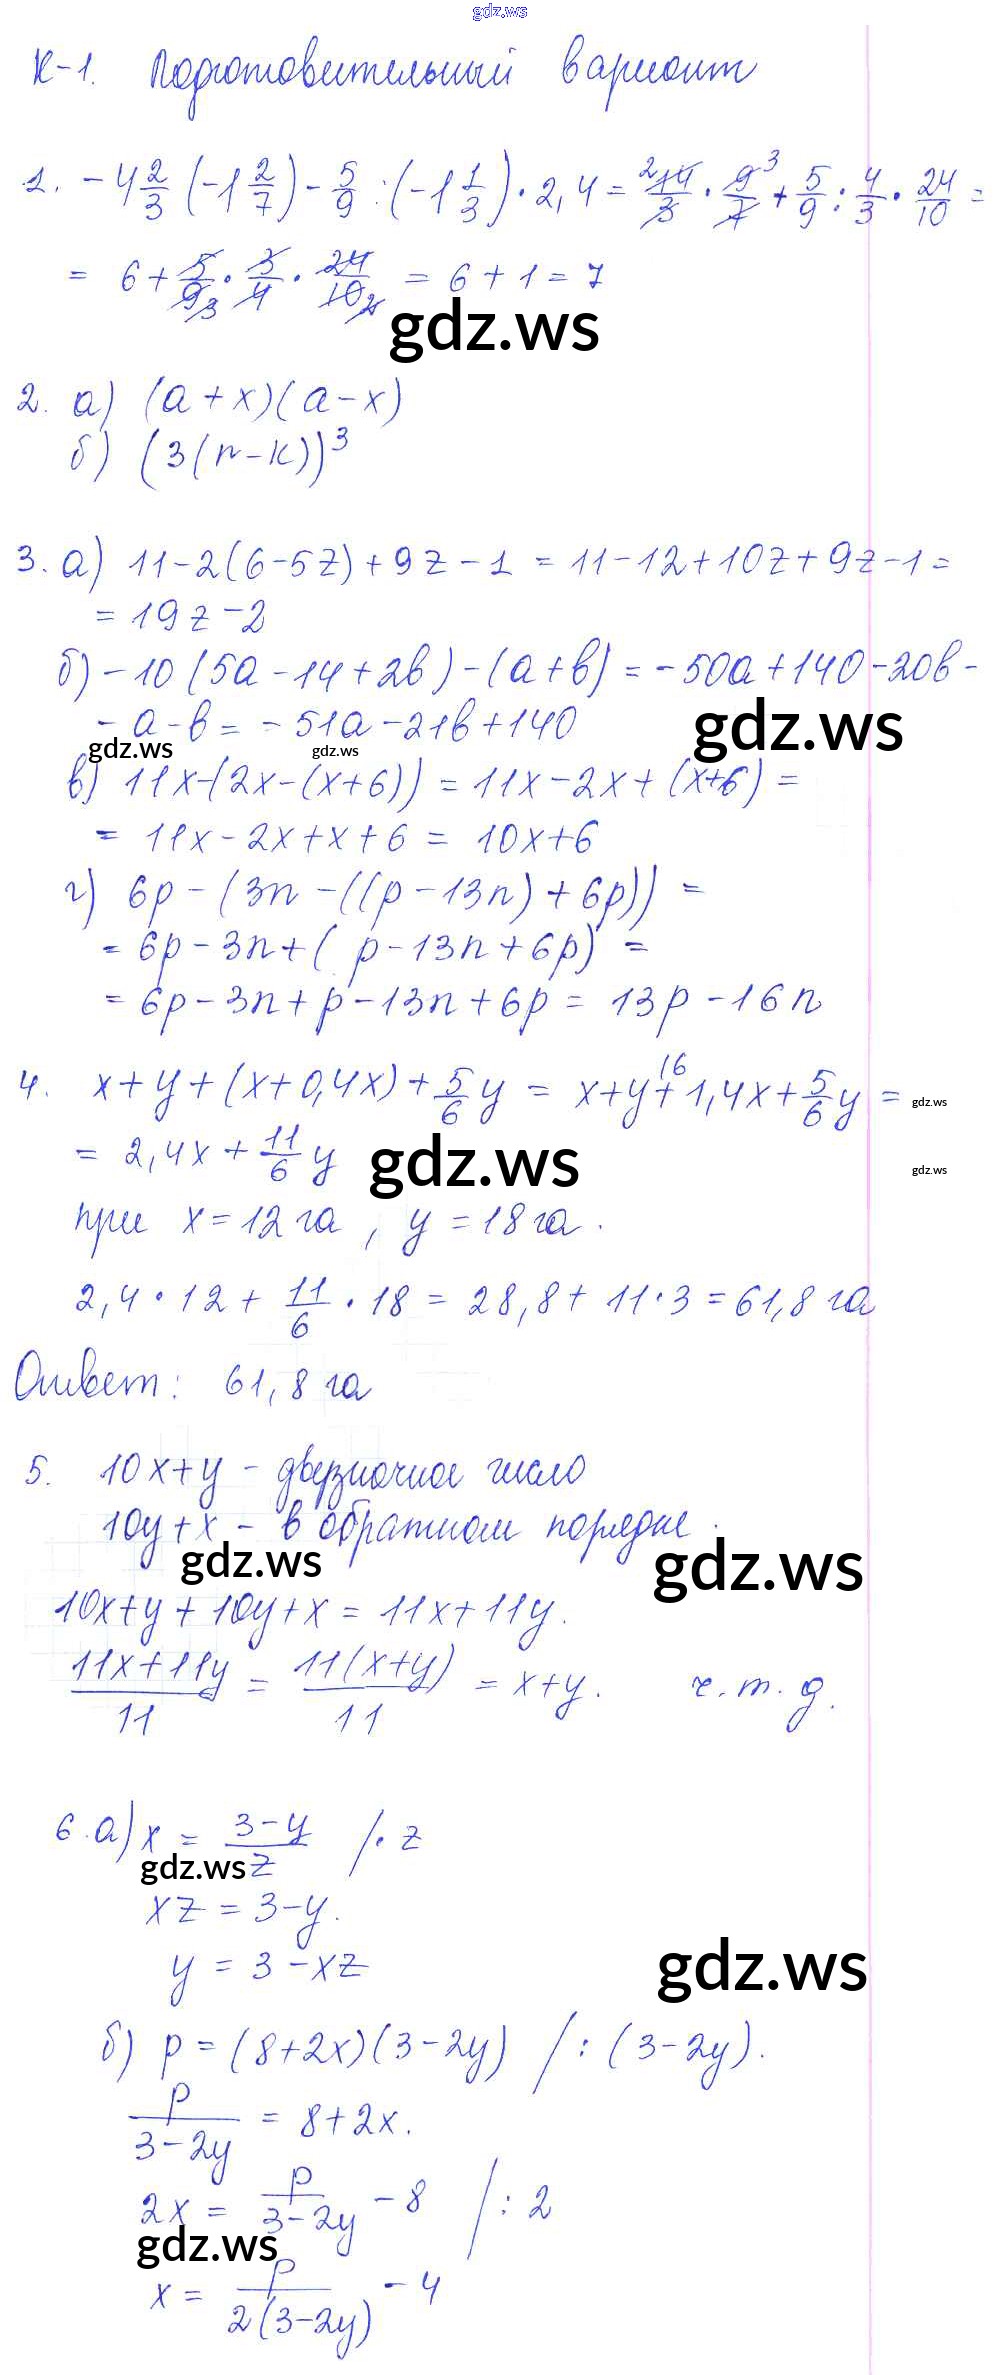 gdz.ws
К-1. Подготовительный вариант
1. -4 2/3 (-1 2/7) - 5/9 : (-1 1/3) · 2,4 = 14/3 · 9/7 + 5/9 : 4/3 · 24/10 =
= 6 + 5/9 · 3/4 · 24/10 = 6 + 1 = 7
gdz.ws
2. а) (a + x)(a - x)
б) (3(n - k))³
3. а) 11 - 2(6 - 5z) + 9z - 1 = 11 - 12 + 10z + 9z - 1 =
= 19z - 2
б) -10(5a - 14 + 2b) - (a + b) = -50a + 140 - 20b -
- a - b = -51a - 21b + 140
gdz.ws
gdz.ws gdz.ws
в) 11x - (2x - (x + 6)) = 11x - 2x + (x + 6) =
= 11x - 2x + x + 6 = 10x + 6
г) 6p - (3n - ((p - 13n) + 6p)) =
= 6p - 3n + (p - 13n + 6p) =
= 6p - 3n + p - 13n + 6p = 13p - 16n
4. x + y + (x + 0,4x) + 5/6 y = x + y + 1,4x + 5/6 y =
gdz.ws
= 2,4x + 11/6 y
gdz.ws gdz.ws
при x = 12 га, y = 18 га.
2,4 · 12 + 11/6 · 18 = 28,8 + 11 · 3 = 61,8 га
Ответ: 61,8 га
5. 10x + y - двузначное число
10y + x - в обратном порядке.
gdz.ws gdz.ws
10x + y + 10y + x = 11x + 11y.
(11x + 11y)/11 = 11(x + y)/11 = x + y. ч.т.д.
6. а) x = (3 - y)/z /· z
gdz.ws
xz = 3 - y.
gdz.ws
y = 3 - xz
б) p = (8 + 2x)(3 - 2y) / : (3 - 2y).
p/(3 - 2y) = 8 + 2x.
2x = p/(3 - 2y) - 8 / : 2
gdz.ws
x = p/(2(3 - 2y)) - 4